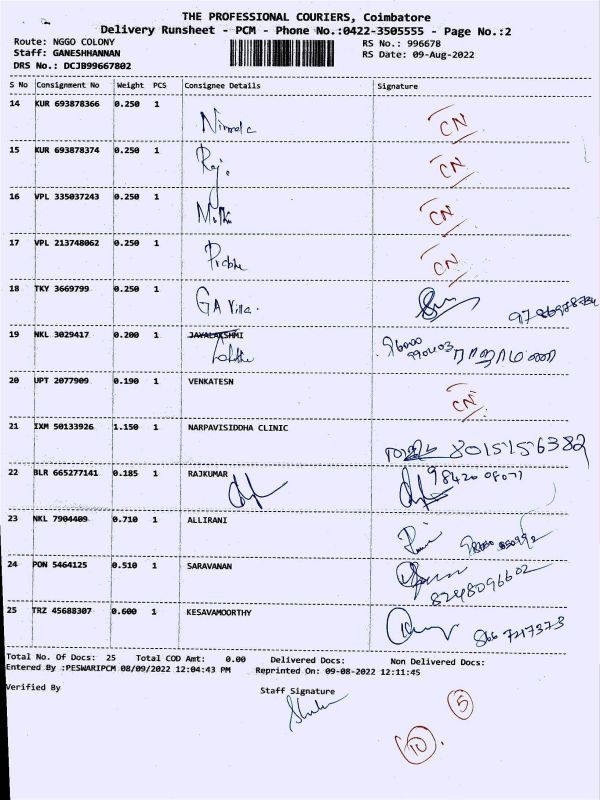 THE PROFESSIONAL COURIERS, Coimbatore
Delivery Runsheet - PCM - Phone No.:0422-3505555 - Page No.:2
Route: NGGO COLONY RS No.: 996678
Staff: GANESHHANNAN RS Date: 09-Aug-2022
DRS No.: DCJB99667802
S No Consignment No Weight PCS Consignee Details Signature
14 KUR 693878366 0.250 1 Nirmala CN
15 KUR 693878374 0.250 1 Raj. CN
16 VPL 335037243 0.250 1 CN
17 VPL 213748062 0.250 1 CN
18 TKY 3669799 0.250 1 GA Villa.
19 NKL 3029417 0.200 1 JAYALAKSHMI
20 UPT 2077909 0.190 1 VENKATESN CN
21 IXM 50133926 1.150 1 NARPAVISIDDHA CLINIC 8015156382
22 BLR 665277141 0.185 1 RAJKUMAR 98420 08071
23 NKL 7904409 0.710 1 ALLIRANI
24 PON 5464125 0.510 1 SARAVANAN 8248096602
25 TRZ 45688307 0.600 1 KESAVAMOORTHY
Total No. Of Docs: 25 Total COD Amt: 0.00 Delivered Docs: Non Delivered Docs:
Entered By :PESWARIPCM 08/09/2022 12:04:43 PM Reprinted On: 09-08-2022 12:11:45
Verified By Staff Signature
5
10.